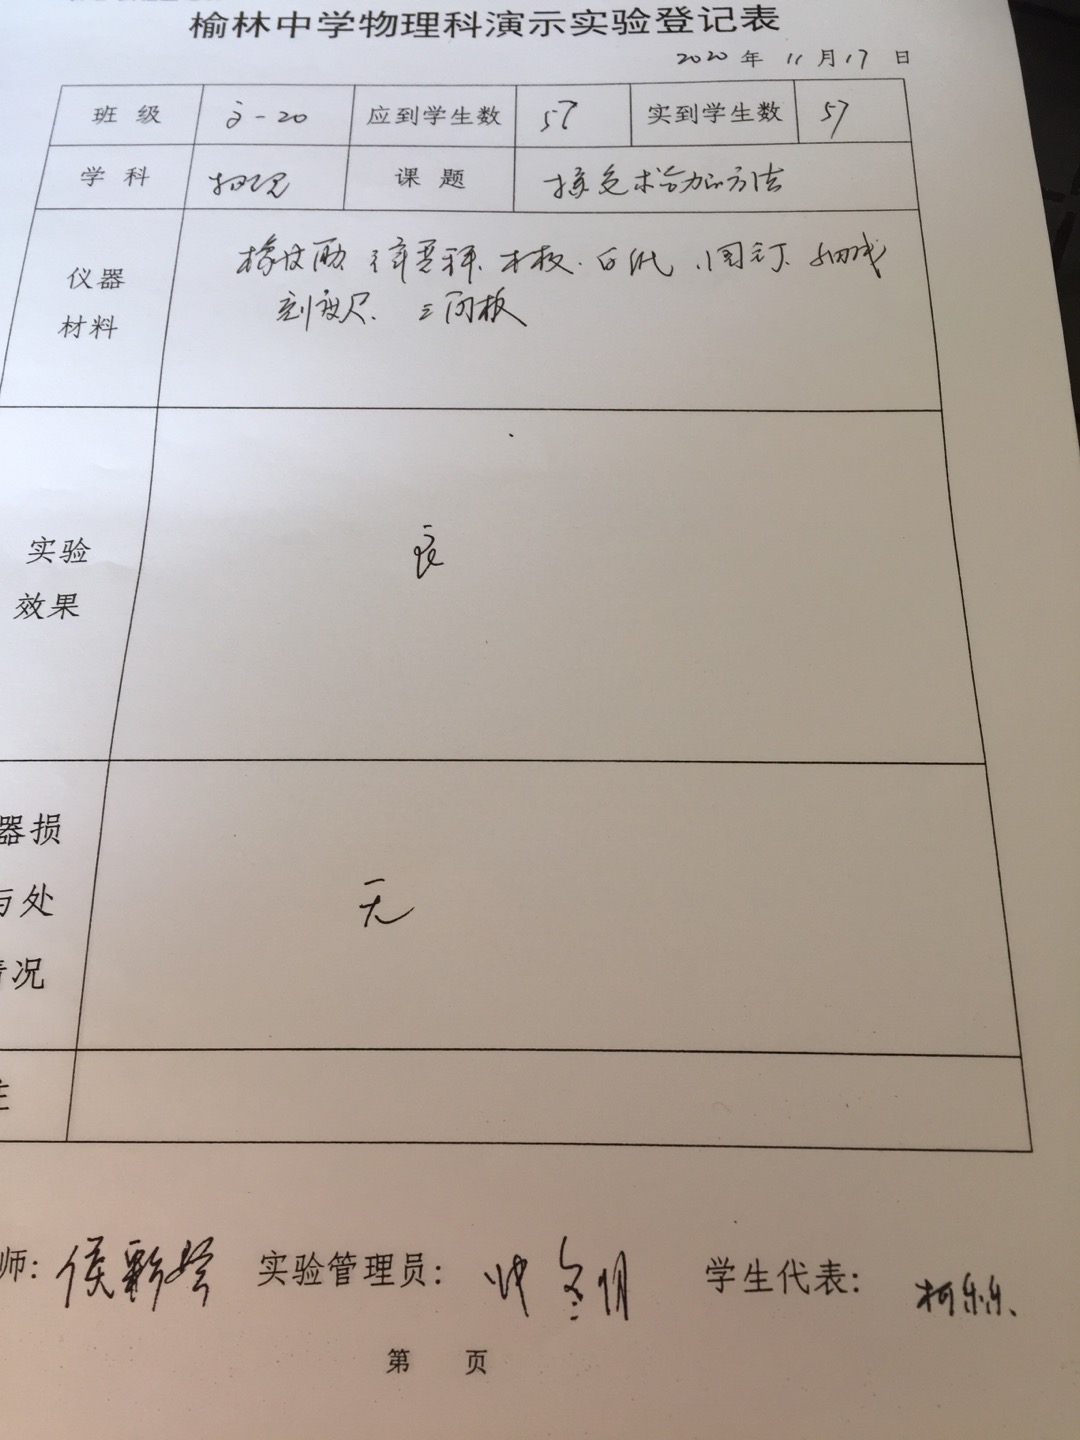 榆林中学物理科演示实验登记表
2020 年 11 月 17 日
班 级 高-20 应到学生数 57 实到学生数 57
学 科 物理 课 题 探究求合力的方法
仪器 橡皮筋 弹簧秤、木板、白纸、图钉、细线
材料 刻度尺、三角板
实验 良
效果
器损
与处 无
情况
注
师: 侯 实验管理员: 学生代表: 柯
第 页